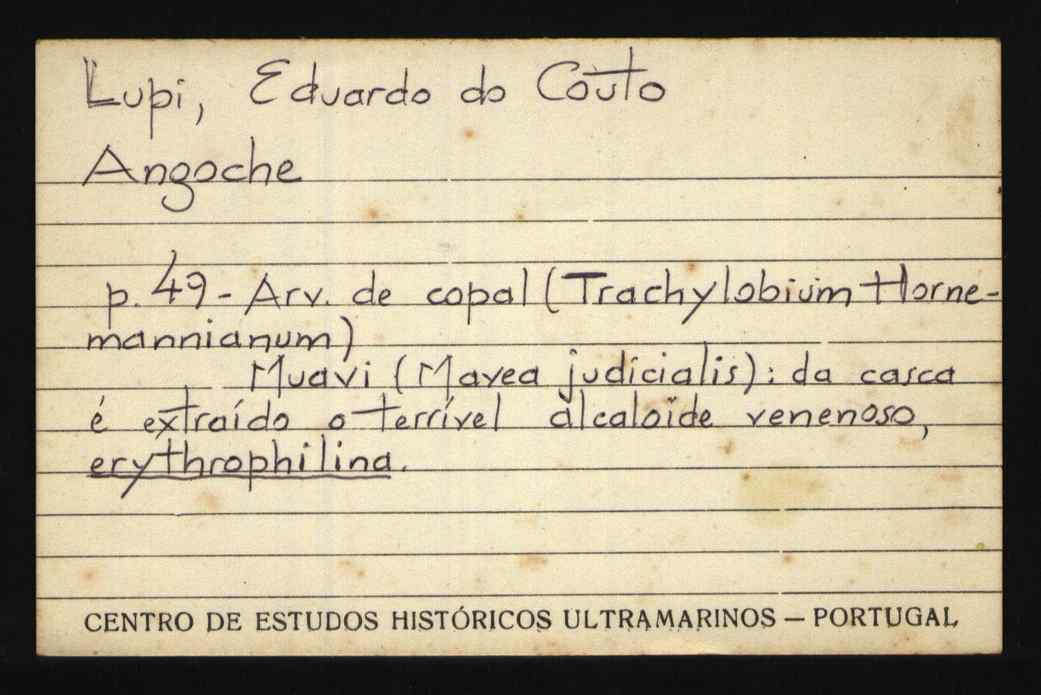 Lupi, Eduardo do Couto
Angoche
p. 49 - Arv. de copal (Trachylobium Horne-
mannianum)
Muavi (Mavea judicialis): da casca
é extraído o terrível alcaloïde venenoso,
erythrophilina.
CENTRO DE ESTUDOS HISTÓRICOS ULTRAMARINOS — PORTUGAL